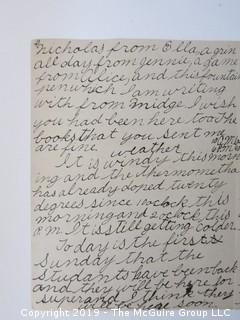 Nicholas from Ella, a grin
all day from Jennie, a game
from Alice, and this fountain
pen which I am writing
with from Midge. I wish
you had been here too. The
books that you sent me
are fine. weather
It is windy this morn
ing and the thermometer
has already doped twenty
degrees since 10 o'clock this
morning and 2 o'clock this
P.M. It is still getting colder.
Today is the first
Sunday that the
students have been back
and they will be here for
super and I think they
Copyright 2019 - The McGuire Group LLC